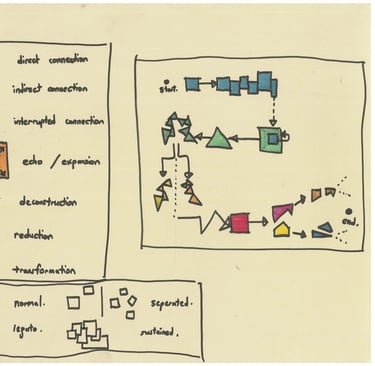 direct connection
indirect connection
interrupted connection
echo / expansion
deconstruction
reduction
transformation
start.
end.
normal.
seperated.
legato.
sustained.